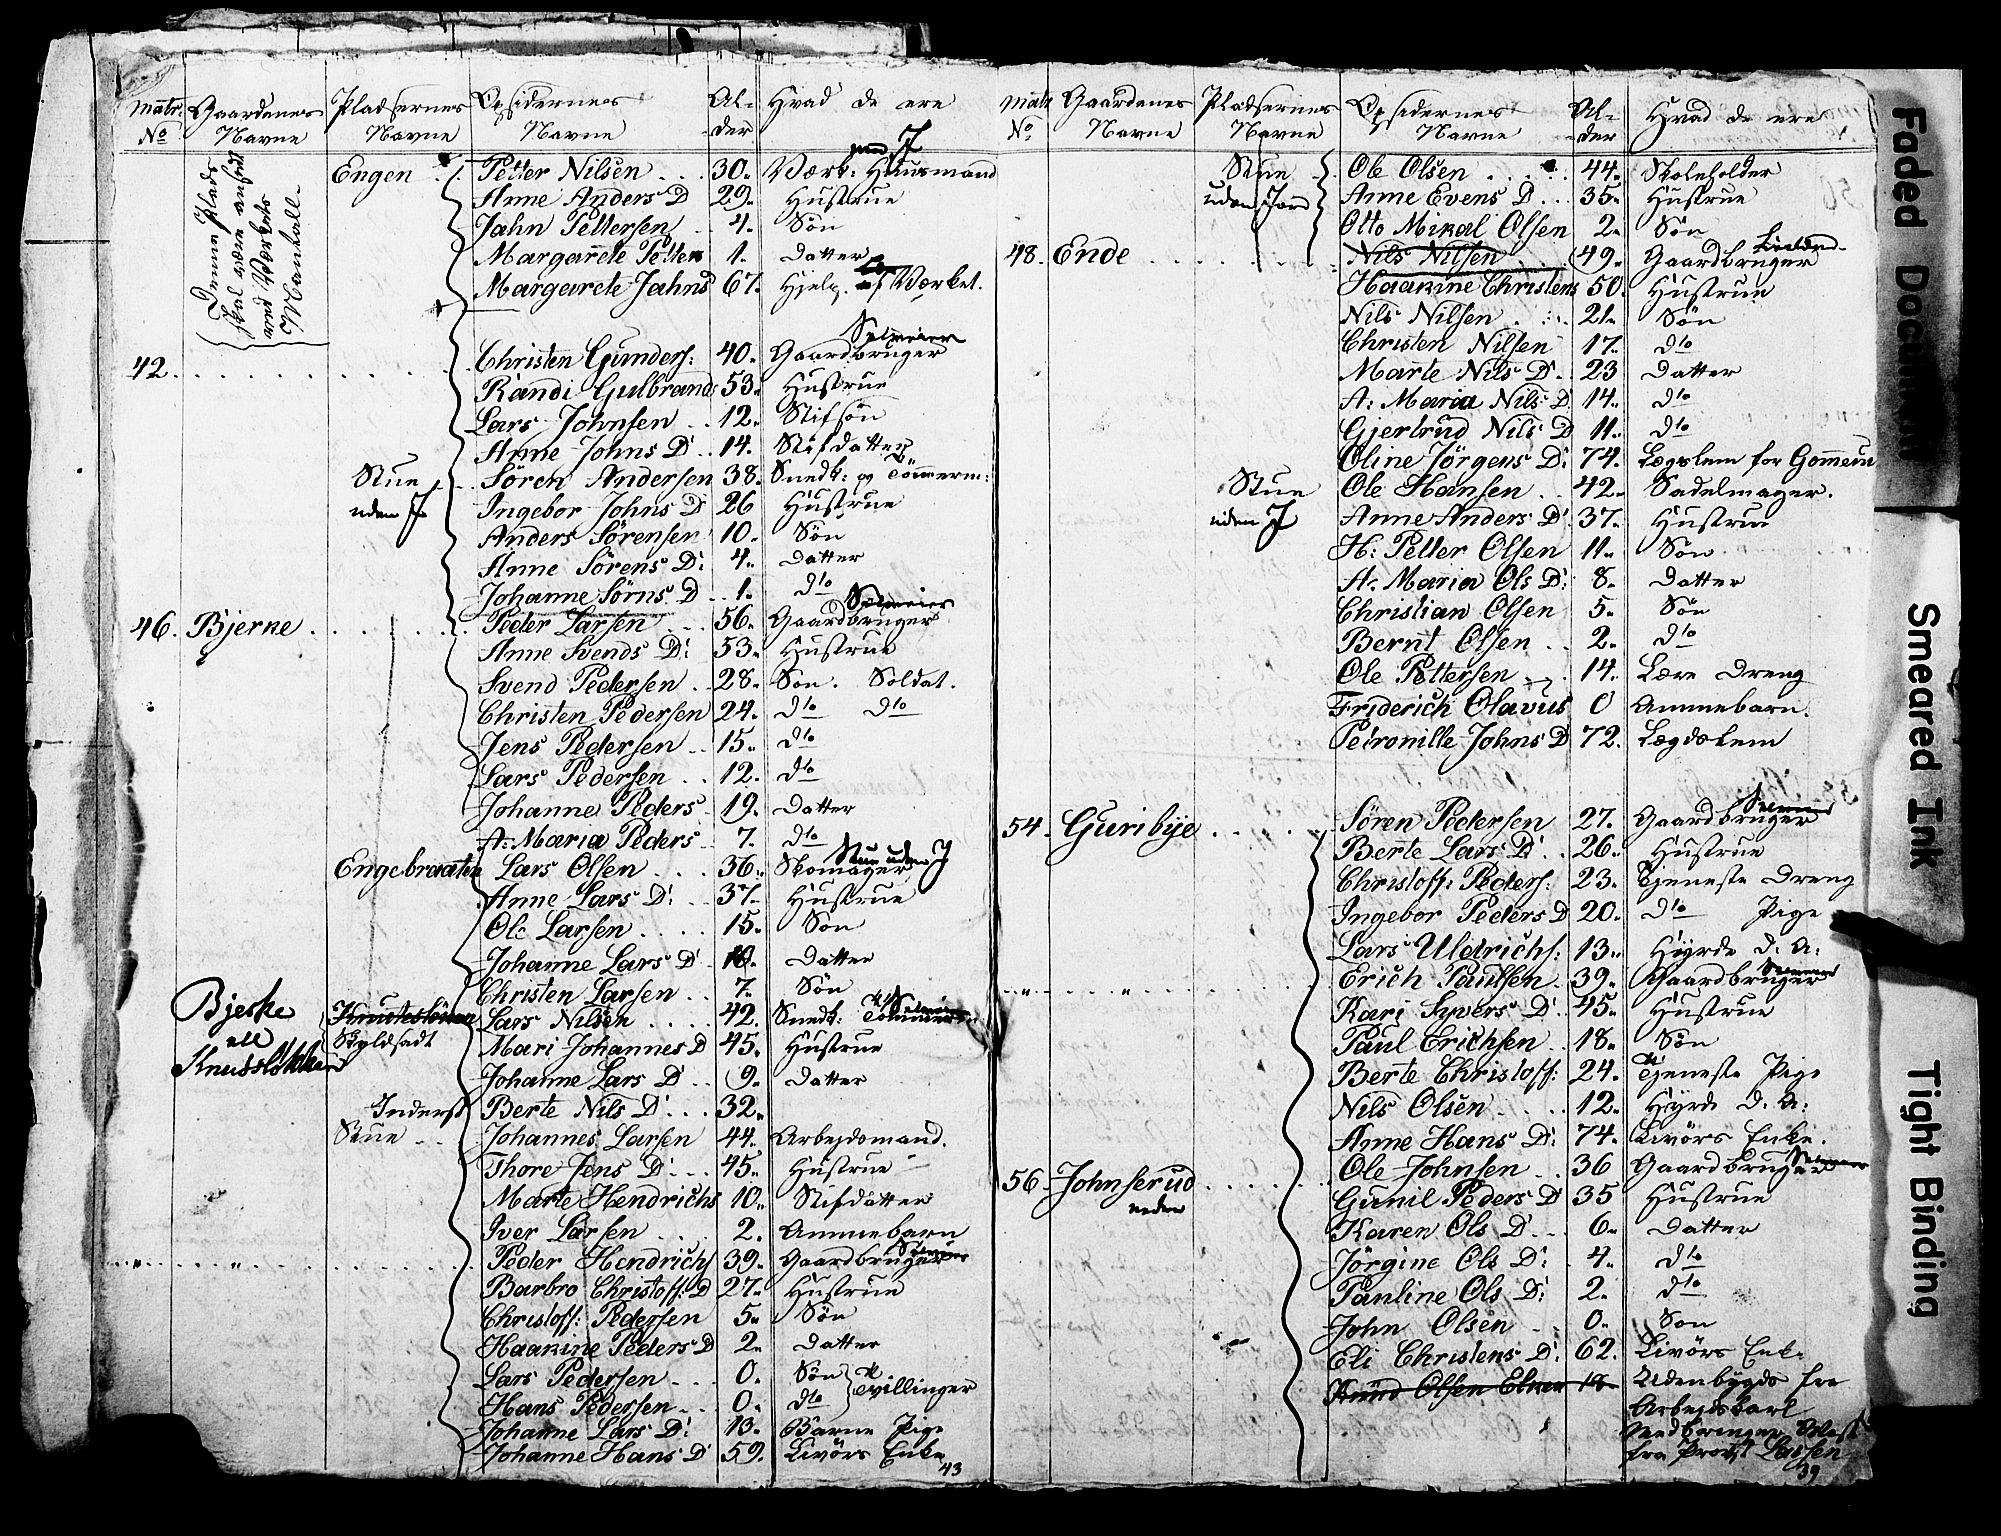 Matr: No Gaardenes Navne Pladsernes Navne Opsidernes Navne Al-der Hvad de ere
Denne Plads skal være anført ved Værkets Mantall
Engen Petter Nilsen 30. Værk: Huusmand med J
Anne Anders D 29. Hustrue
Jahn Pettersen 4. Søn
Margarete Petters 1. Datter
Margarete Jahns 67. Hjelp. af Værket.
42. Christen Gunders: 40. Gaardbruger Selveier
Randi Gulbrands 53. Hustrue
Lars Johnsen 12. Stifsøn
Anne Johns D 14. Stifdatter
Stue Søren Andersen 38. Snedk: og Tömmerm:
uden J Ingebor Johns D 26 Hustrue
Anders Sörensen 10. Søn
Anne Sörens D: 4. Datter
Johanne Sörns D 1. Dto
46. Bjerke Peder Larsen 56. Gaardbruger Selveier
Anne Svends D: 53. Hustrue
Svend Pedersen 28. Søn. Soldat.
Christen Pedersen 24. Dto Dto
Jens Pedersen 15. Dto
Lars Pedersen 12. Dto
Johanne Peders 19. Datter
A: Maria Peders 7. Dto
Engebraaten Lars Olsen 36. Skomager Stue uden J
Anne Lars D: 37. Hustrue
Ole Larsen 15. Søn
Johanne Lars D 10. Datter
Christen Larsen 7. Søn
Bjerke ell Knudsløkken
Lars Nilsen 42. Snedk: Tömmerm:
Skyldsadt Mari Johannes D 45. Hustrue
Johanne Lars D 9. Datter
Inderst Berte Nils D 32.
Stue Johannes Larsen 44. Arbejdsmand.
Thore Jens D 45. Hustrue
Marte Hendrichs 10. Stifdatter
Iver Larsen 2. Ammebarn
" " Peder Hendrichs 39. Gaardbruger Selveier
Barbro Christoff: D 27. Hustrue
Christoff: Pedersen 5. Søn
Haakine Peders D 2. Datter
Lars Pedersen 0. Søn
Hans Pedersen 0. Dto Tvillinger
Johanne Lars D: 13. Barne Pige
Johanne Hans D 59. Livörs Enke
43
Matr No Gaardenes Navne Pladsernes Navne Opsidernes Navne Al-der Hvad de ere
Stue Ole Olsen 44. Skoleholder
uden Jord Anne Evens D 35. Hustrue
Otto Mikal Olsen 2. Søn
48. Ende Nils Nilsen 49. Gaardbruger
Haakine Christens 50. Hustrue
Nils Nilsen 21. Søn
Christen Nilsen 17. Dto
Marte Nils D. 23 Datter
A: Maria Nils D 14. Dto
Gjertrud Nils D 11. Dto
Oline Jörgens D: 74. Lægslem for
Stue Ole Hansen 42. Sadelmager.
uden J Anne Anders D 37. Hustrue
H: Petter Olsen 11. Søn
A: Maria Ols D: 8. Datter
Christian Olsen 5. Søn
Bernt Olsen 2. Dto
Ole Pettersen 14. Lære Dreng
Friderich Olavus 0 Ammebarn.
Petronille Johns D 72. Lægdslem
54. Guribye Sören Pedersen 27. Gaardbruger Selveier
Berte Lars D 26. Hustrue
Christoff: Peders: 23. Tjeneste Dreng
Ingebor Peders D 20. Dto Pige
Lars Uldrichs: 13. Hyrde D. A:
" " Erich Paulsen 39. Gaardbruger Selveier
Kari Syvers D: 45. Hustrue
Paul Erichsen 18. Søn
Berte Christoff: 24. Tjeneste Pige
Nils Olsen 12. Hyrde D. A:
Anne Hans D: 74. Livörs Enke.
56. Johnserud Ole Johnsen 36 Gaardbruger Selveier
nedre Gunil Peders D 35 Hustrue
Karen Ols D. 6. Datter
Jörgine Ols D: 4. Dto
Pauline Ols D: 2. Dto
John Olsen 0. Søn
Eli Christens D: 62. Livörs Enke
Knud Olsen 18. Udenbygds fra
Arbejdskarl
Medbringer Attest
fra Provst Lassen
39
Faded Document Smeared Ink Tight Binding